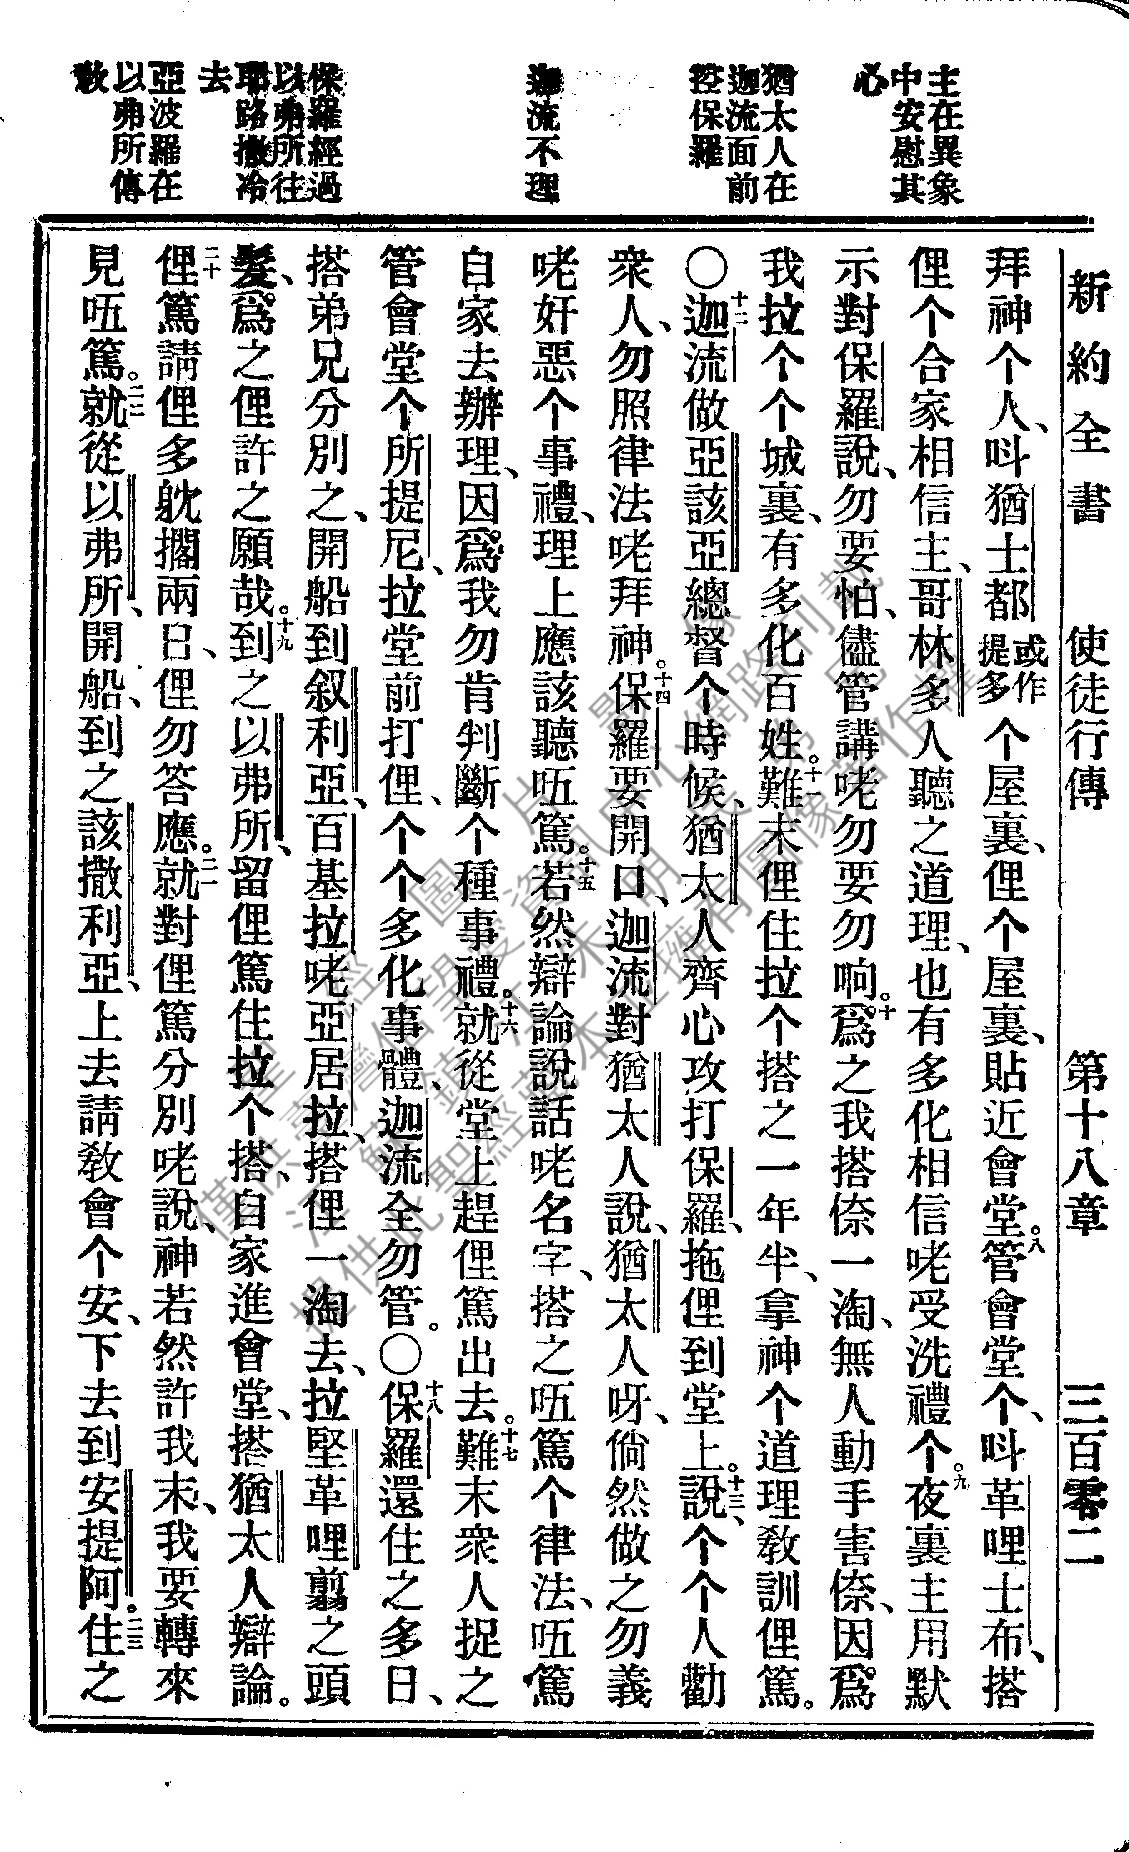 新約全書 使徒行傳 第十八章 三百零二
主在異象
中安慰其
心
猶太人在
迦流面前
控保羅
迦流不理
保羅經過
以弗所往
耶路撒冷
去
亞波羅在
以弗所傳
敎
拜神个人、呌猶士都或作提多个屋裏、俚个屋裏、貼近會堂。八管會堂个、呌革哩士布、搭
俚个合家相信主、哥林多人聽之道理、也有多化相信咾受洗禮个。九夜裏主用默
示對保羅說、勿要怕、儘管講咾勿要勿响。十爲之我搭倷一淘、無人動手害倷、因爲
我拉个个城裏、有多化百姓。十一難末俚住拉个搭之一年半、拿神个道理敎訓俚篤。
〇十二迦流做亞該亞總督个時候、猶太人齊心攻打保羅、拖俚到堂上。十三說、个个人勸
衆人、勿照律法咾拜神。十四保羅要開口、迦流對猶太人說、猶太人呀、倘然做之勿義
咾奸惡个事禮、理上應該聽㕶篤。十五若然辯論說話咾名字、搭之㕶篤个律法、㕶篤
自家去辦理、因爲我勿肯判斷个種事禮。十六就從堂上趕俚篤出去。十七難末衆人捉之
管會堂个所提尼、拉堂前打俚、个个多化事體、迦流全勿管。〇十八保羅還住之多日、
搭弟兄分別之、開船到叙利亞、百基拉咾亞居拉、搭俚一淘去、拉堅革哩翦之頭
髮、爲之俚許之願哉。十九到之以弗所、留俚篤住拉个搭、自家進會堂、搭猶太人辯論。
二十俚篤請俚多躭擱兩日、俚勿答應。二一就對俚篤分別咾說、神若然許我末、我要轉來
見㕶篤。二二就從以弗所、開船、到之該撒利亞、上去請敎會个安、下去到安提阿。二三住之
僅供臺灣信望愛資訊中心網路刊載